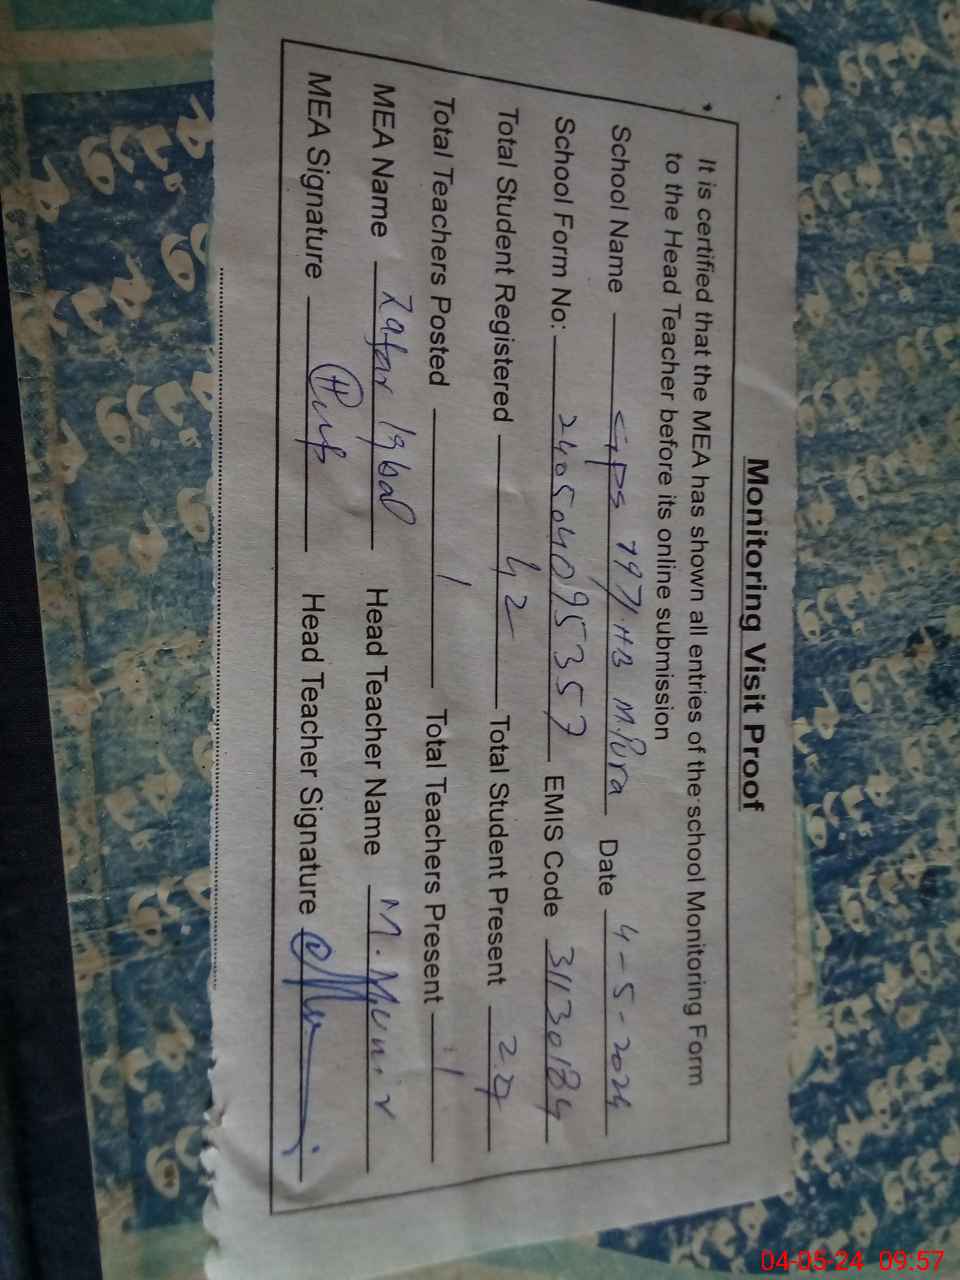 Monitoring Visit Proof
It is certified that the MEA has shown all entries of the school Monitoring Form
to the Head Teacher before its online submission
School Name GPS 197/HB M.Pura Date 4-5-2024
School Form No: 240504095357 EMIS Code 31130184
Total Student Registered 42 Total Student Present 27
Total Teachers Posted 1 Total Teachers Present 1
MEA Name Zafar Iqbal Head Teacher Name M. Munir
MEA Signature Head Teacher Signature
04-05-24 09:57